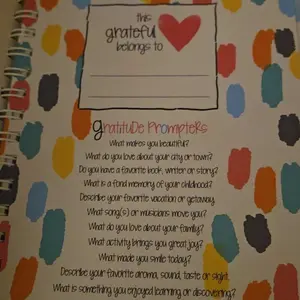 this
grateful
belongs to
gratitude prompters
What makes you beautiful?
What do you love about your city or town?
Do you have a favorite book, writer or story?
What is a fond memory of your childhood?
Describe your favorite vacation or getaway.
What song(s) or musicians move you?
What do you love about your family?
What activity brings you great joy?
What made you smile today?
Describe your favorite aroma, sound, taste or sight.
What is something you enjoyed learning or discovering?